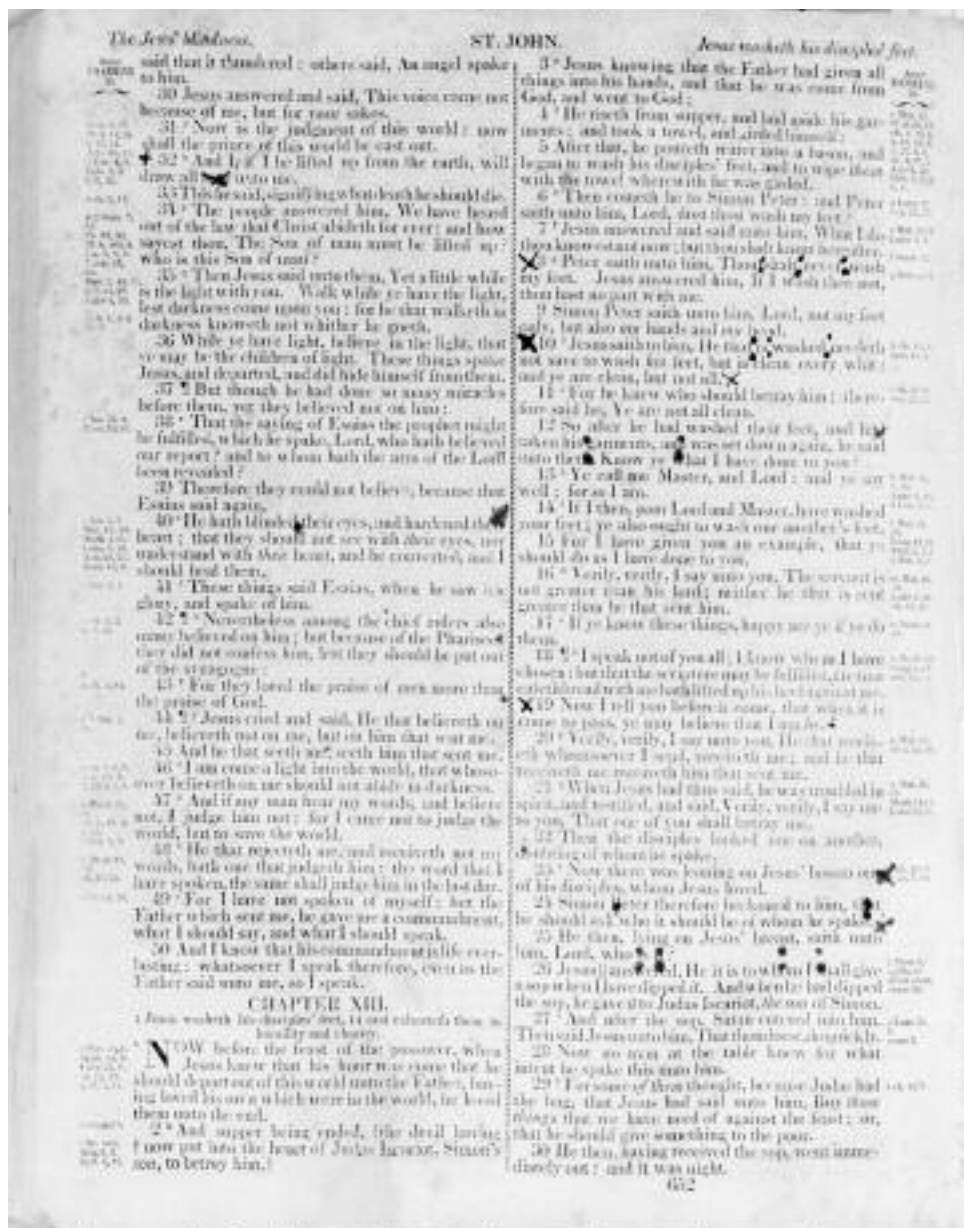 The Jews' blindness.
ST. JOHN.
Jesus washeth his disciples' feet.
said that it thundered : others said, An angel spake
to him.
30 Jesus answered and said, This voice came not
because of me, but for your sakes.
31 Now is the judgment of this world : now
shall the prince of this world be cast out.
32 And I, if I be lifted up from the earth, will
draw all unto me.
33 This he said, signifying what death he should die.
34 The people answered him, We have heard
out of the law that Christ abideth for ever : and how
sayest thou, The Son of man must be lifted up ?
who is this Son of man ?
35 Then Jesus said unto them, Yet a little while
is the light with you. Walk while ye have the light,
lest darkness come upon you : for he that walketh in
darkness knoweth not whither he goeth.
36 While ye have light, believe in the light, that
ye may be the children of light. These things spake
Jesus, and departed, and did hide himself from them.
37 ¶ But though he had done so many miracles
before them, yet they believed not on him :
38 That the saying of Esaias the prophet might
be fulfilled, which he spake, Lord, who hath believed
our report ? and to whom hath the arm of the Lord
been revealed ?
39 Therefore they could not believe, because that
Esaias said again,
40 He hath blinded their eyes, and hardened their
heart ; that they should not see with their eyes, nor
understand with their heart, and be converted, and I
should heal them.
41 These things said Esaias, when he saw his
glory, and spake of him.
42 ¶ Nevertheless among the chief rulers also
many believed on him ; but because of the Pharisees
they did not confess him, lest they should be put out
of the synagogue :
43 For they loved the praise of men more than
the praise of God.
44 ¶ Jesus cried and said, He that believeth on
me, believeth not on me, but on him that sent me.
45 And he that seeth me, seeth him that sent me.
46 I am come a light into the world, that whoso-
ever believeth on me should not abide in darkness.
47 And if any man hear my words, and believe
not, I judge him not : for I came not to judge the
world, but to save the world.
48 He that rejecteth me, and receiveth not my
words, hath one that judgeth him : the word that I
have spoken, the same shall judge him in the last day.
49 For I have not spoken of myself ; but the
Father which sent me, he gave me a commandment,
what I should say, and what I should speak.
50 And I know that his commandment is life ever-
lasting : whatsoever I speak therefore, even as the
Father said unto me, so I speak.
CHAPTER XIII.
1 Jesus washeth his disciples' feet, 14 and exhorteth them to
humility and charity.
NOW before the feast of the passover, when
Jesus knew that his hour was come that he
should depart out of this world unto the Father, hav-
ing loved his own which were in the world, he loved
them unto the end.
2 And supper being ended, (the devil having
now put into the heart of Judas Iscariot, Simon's
son, to betray him,)
3 Jesus knowing that the Father had given all
things into his hands, and that he was come from
God, and went to God ;
4 He riseth from supper, and laid aside his gar-
ments ; and took a towel, and girded himself :
5 After that, he poureth water into a bason, and
began to wash his disciples' feet, and to wipe them
with the towel wherewith he was girded.
6 Then cometh he to Simon Peter : and Peter
saith unto him, Lord, dost thou wash my feet ?
7 Jesus answered and said unto him, What I do
thou knowest not now ; but thou shalt know hereafter.
8 Peter saith unto him, Thou shalt never wash
my feet. Jesus answered him, If I wash thee not,
thou hast no part with me.
9 Simon Peter saith unto him, Lord, not my feet
only, but also my hands and my head.
10 Jesus saith to him, He that is washed needeth
not save to wash his feet, but is clean every whit :
and ye are clean, but not all.
11 For he knew who should betray him ; there-
fore said he, Ye are not all clean.
12 So after he had washed their feet, and had
taken his garments, and was set down again, he said
unto them, Know ye what I have done to you ?
13 Ye call me Master, and Lord : and ye say
well ; for so I am.
14 If I then, your Lord and Master, have washed
your feet ; ye also ought to wash one another's feet.
15 For I have given you an example, that ye
should do as I have done to you.
16 Verily, verily, I say unto you, The servant is
not greater than his lord ; neither he that is sent
greater than he that sent him.
17 If ye know these things, happy are ye if ye do
them.
18 ¶ I speak not of you all ; I know whom I have
chosen : but that the scripture may be fulfilled, He that
eateth bread with me hath lifted up his heel against me.
19 Now I tell you before it come, that when it is
come to pass, ye may believe that I am he.
20 Verily, verily, I say unto you, He that receiv-
eth whomsoever I send, receiveth me ; and he that
receiveth me receiveth him that sent me.
21 When Jesus had thus said, he was troubled in
spirit, and testified, and said, Verily, verily, I say un-
to you, That one of you shall betray me.
22 Then the disciples looked one on another,
doubting of whom he spake.
23 Now there was leaning on Jesus' bosom one
of his disciples, whom Jesus loved.
24 Simon Peter therefore beckoned to him, that
he should ask who it should be of whom he spake.
25 He then, lying on Jesus' breast, saith unto
him, Lord, who
26 Jesus answered, He it is to whom I shall give
a sop when I have dipped it. And when he had dipped
the sop, he gave it to Judas Iscariot, the son of Simon.
27 And after the sop, Satan entered into him.
Then said Jesus unto him, That thou doest, do quickly.
28 Now no man at the table knew for what
intent he spake this unto him.
29 For some of them thought, because Judas had
the bag, that Jesus had said unto him, Buy those
things that we have need of against the feast ; or,
that he should give something to the poor.
30 He then, having received the sop, went imme-
diately out : and it was night.
652